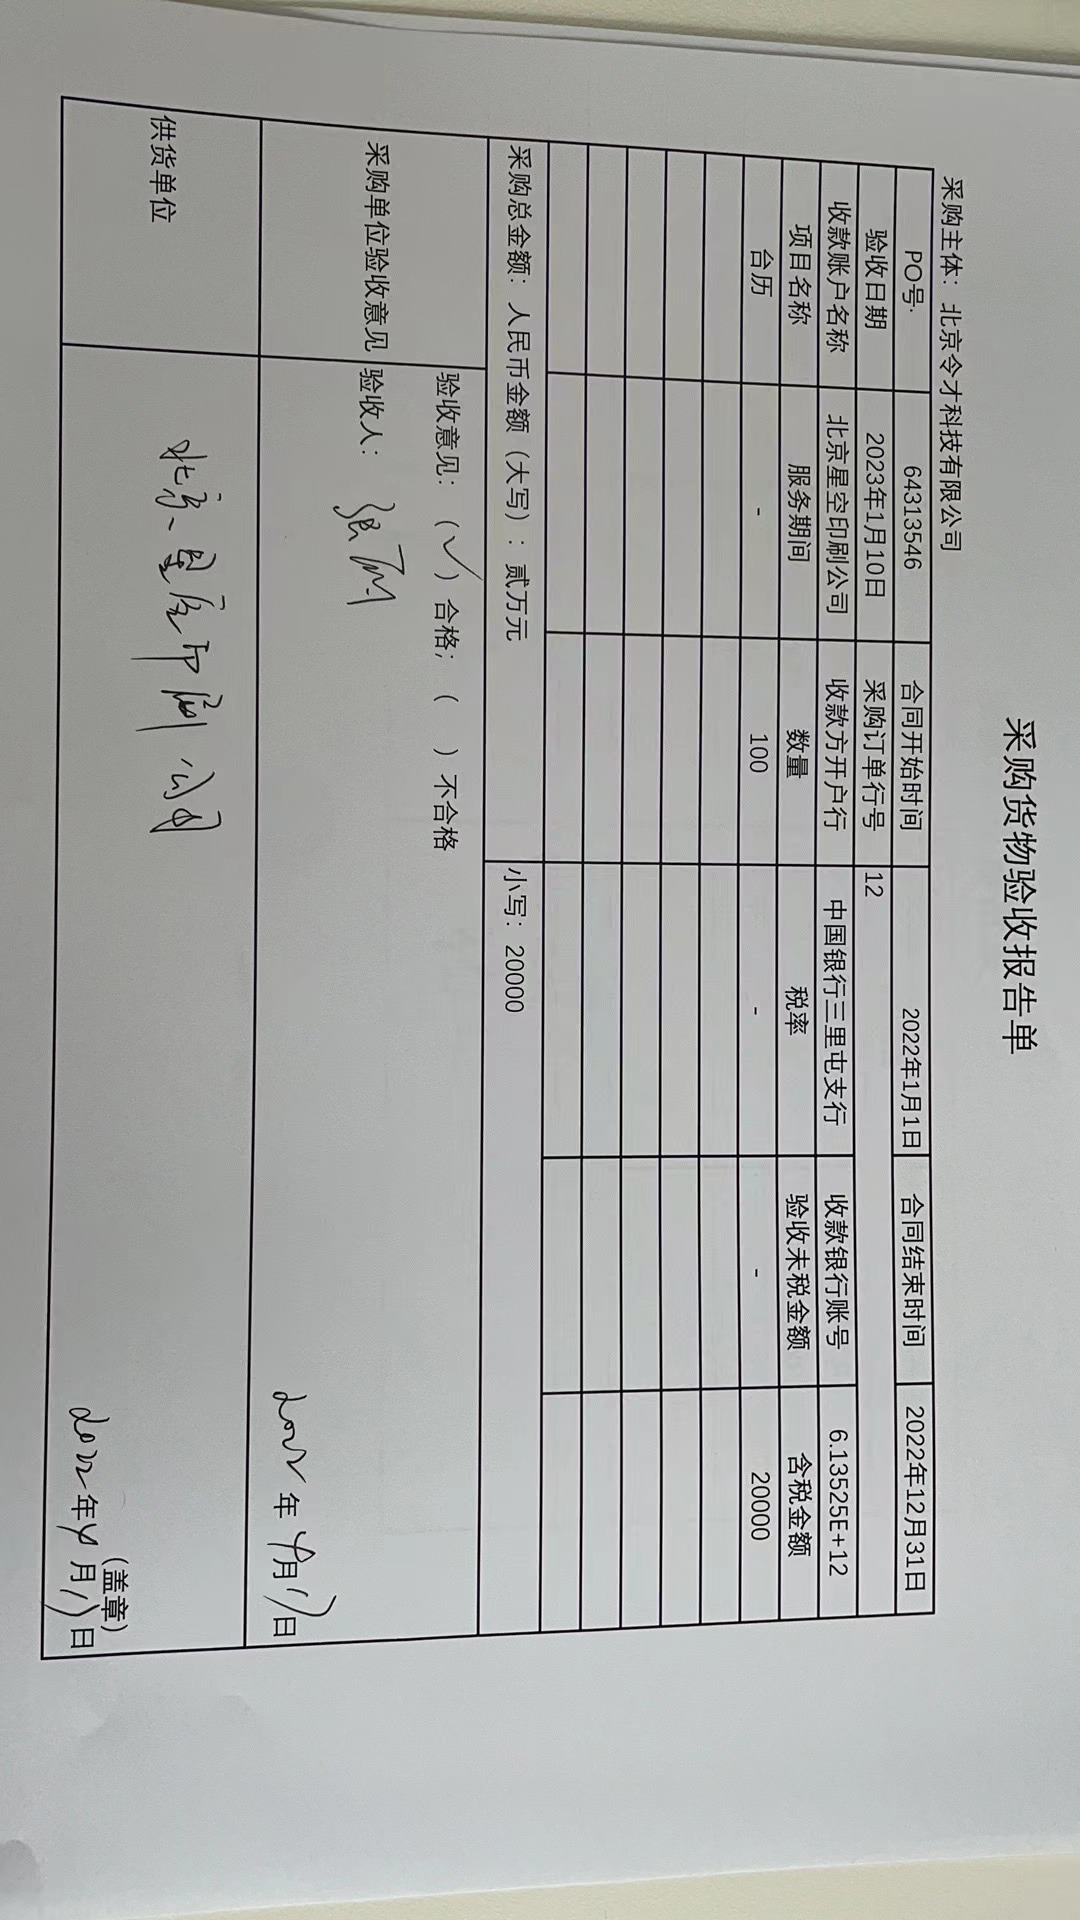 采购货物验收报告单
采购主体：北京令才科技有限公司
PO号· 64313546 合同开始时间 2022年1月1日 合同结束时间 2022年12月31日
验收日期 2023年1月10日 采购订单行号 12
收款账户名称 北京星空印刷公司 收款方开户行 中国银行三里屯支行 收款银行账号 6.13525E+12
项目名称 服务期间 数量 税率 验收未税金额 含税金额
台历 - 100 - - 20000
采购总金额：人民币金额（大写）：贰万元 小写：20000
采购单位验收意见
验收意见：（✓）合格；（ ）不合格
验收人： 张
2022年4月17日
供货单位
北京星空印刷公司
（盖章）
2022年4月17日